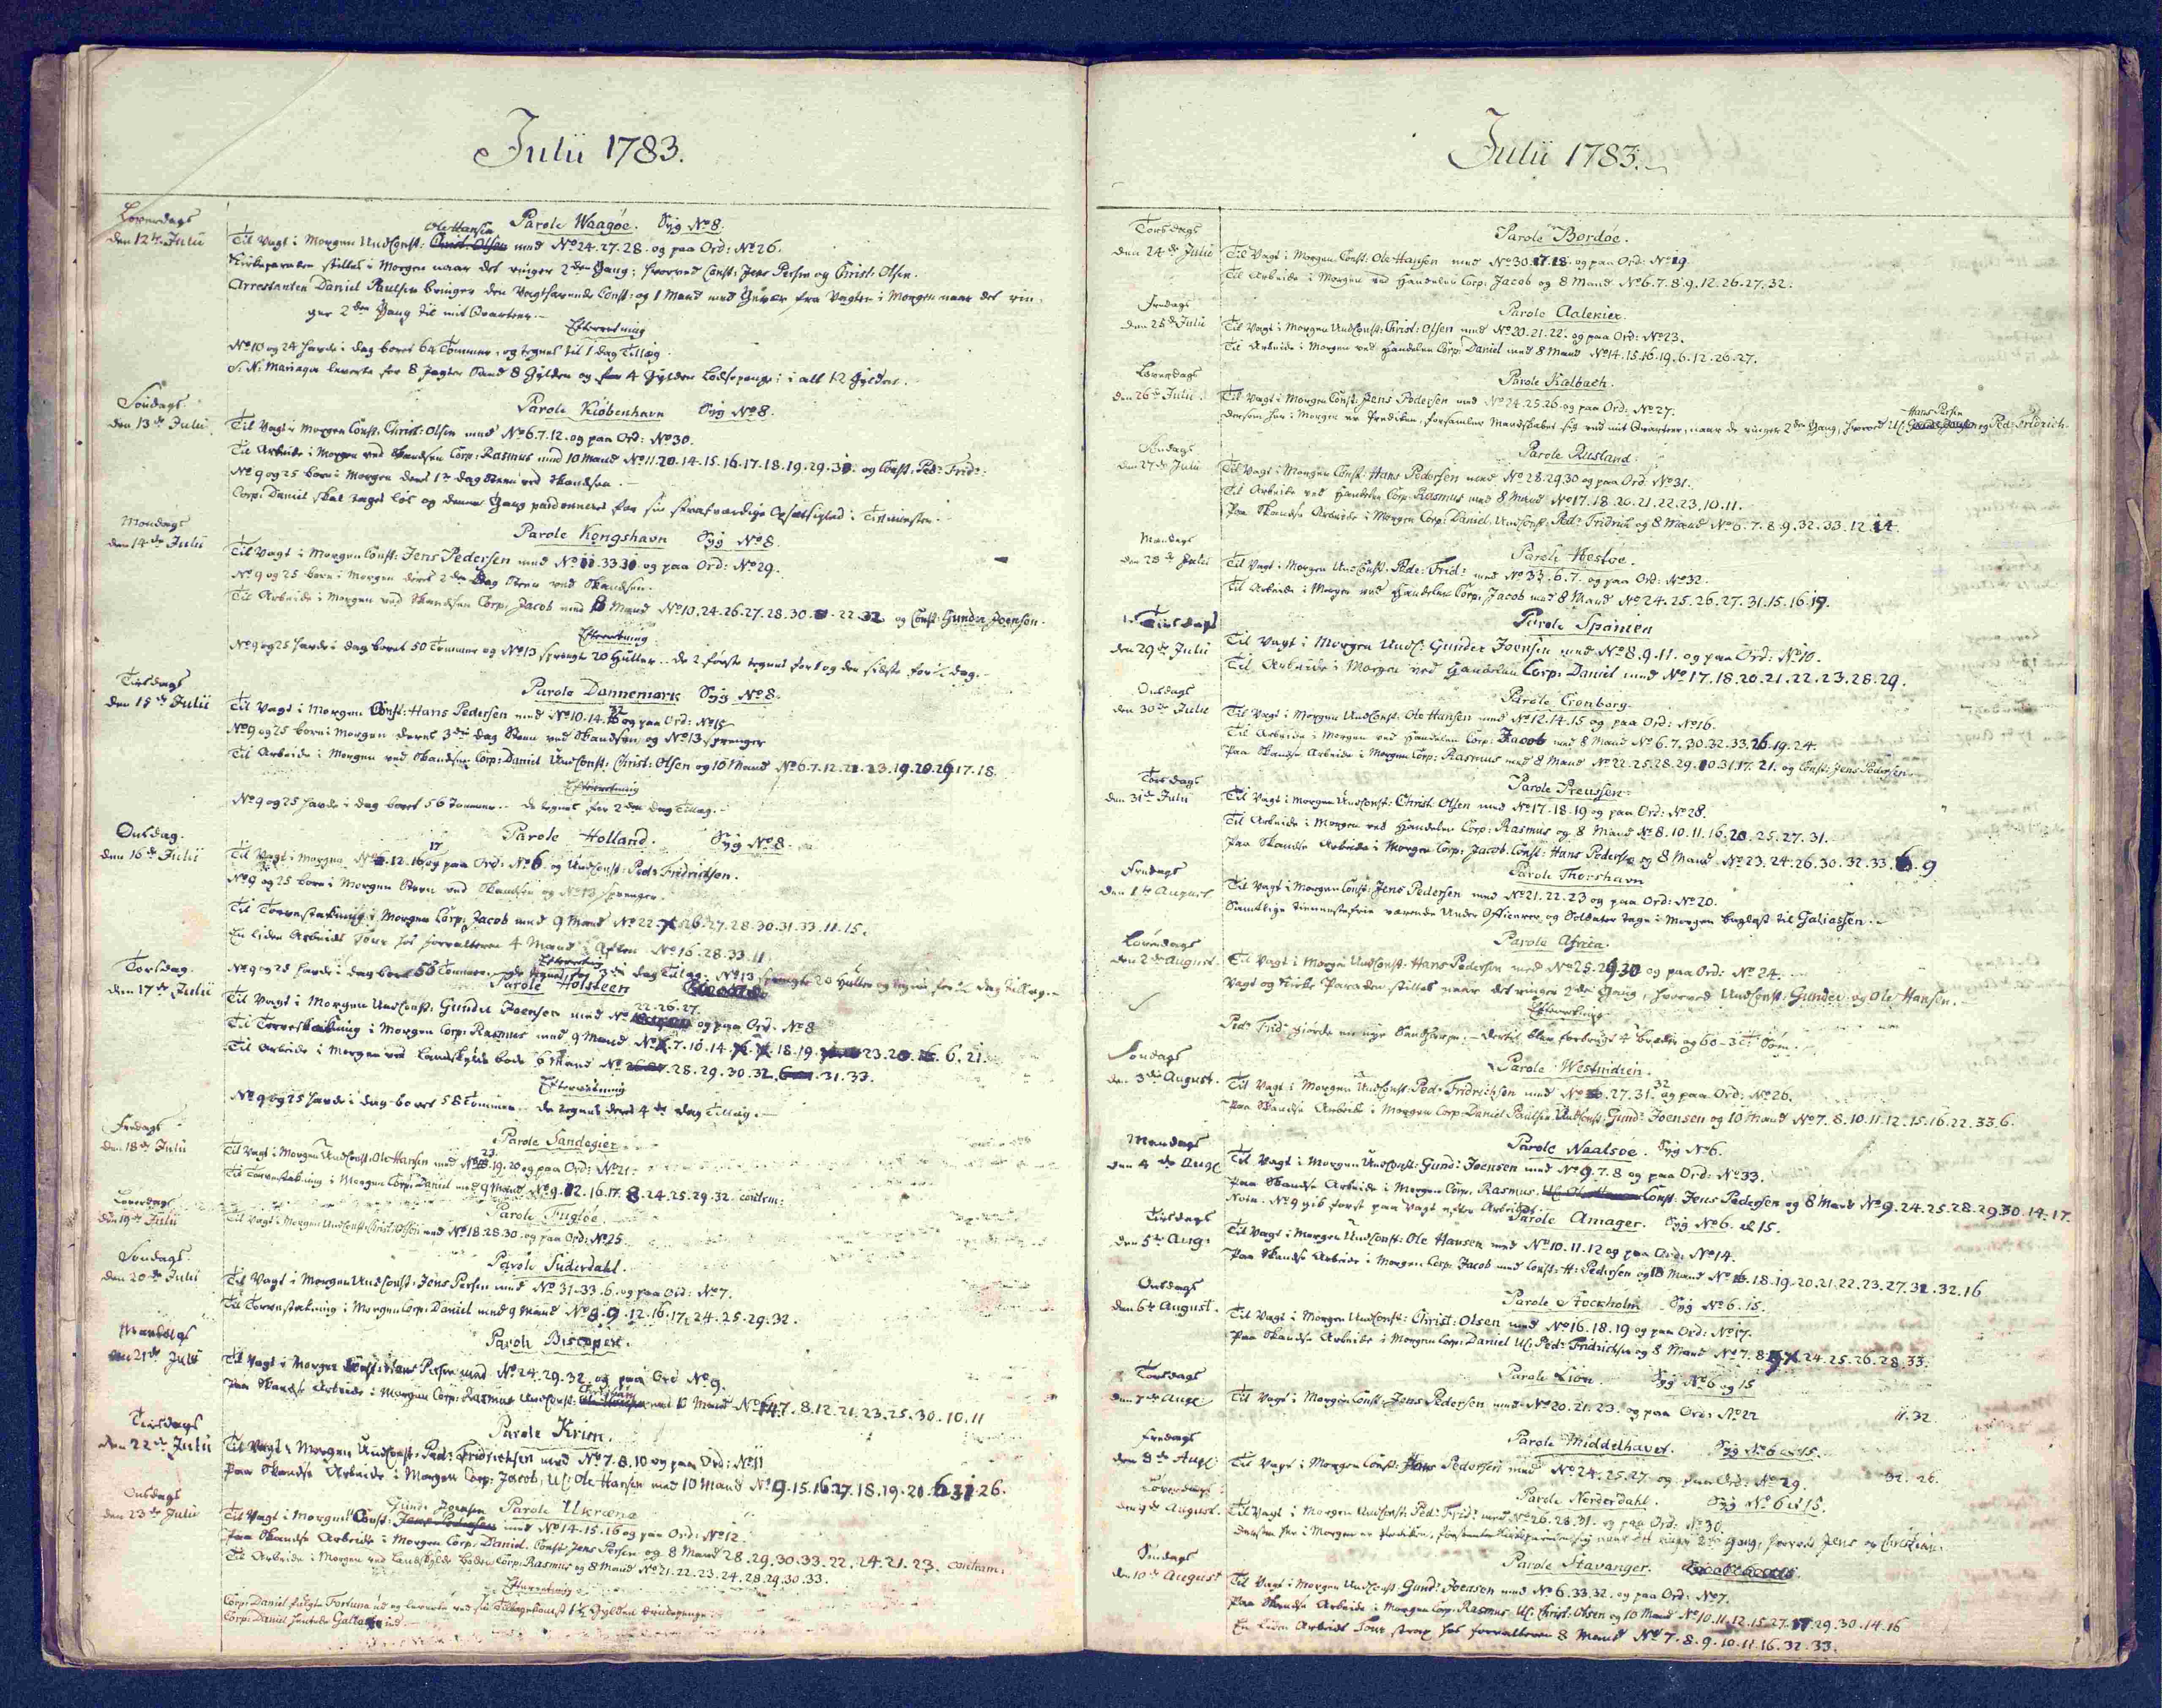 Julii 1783.
Loverdags
den 12te Julii
Parole Waagøe. Syg No 8.
Ole Hansen
Til Vagt i Morgen UndConst: Christ: Olsen med No 24. 27. 28. og paa Ord: No 26.
Kirkeparaden stilles i Morgen naar det ringer 2den Gang; hvorved Const: Jens Persen og Christ: Olsen.
Arrestanten Daniel Paulsen bringes den Vagthavende Const: og 1 Mand med Gevær fra Vagten i Morgen naar det rin-
ger 2den Gang til mit Qvarteer.
Efterretning
No 10 og 24 havde i dag boret 64 Tommer, og tegnes til 1 dag Tillæg.
leverte for 8 Sand 8 Gylden og for 4 Gylden Lodsepenge; i alt 12 Gylden.
Søndags
den 13de Julii
Parole Kiøbenhavn Syg No 8.
Til Vagt i Morgen Const: Christ: Olsen med No 6. 7. 12. og paa Ord: No 30.
Til Arbeide i Morgen ved Skandsen Corp: Rasmus med 10 Mand No 11. 20. 14. 15. 16. 17. 18. 19. 29. 31. og Const: Ped: Frid:
No 9 og 25 bore i Morgen deres 1te dag Steen ved Skandsen.
Corp: Daniel skal tages løs og denne Gang pardonneres for sin strafværdige Opsætsighed i Tienesten.
Mondags
den 14de Julii
Parole Kongshavn Syg No 8.
Til Vagt i Morgen Const: Jens Pedersen med No 11. 33. 31 og paa Ord: No 29.
No 9 og 25 bore i Morgen deres 2den Dag Steen ved Skandsen.
Til Arbeide i Morgen ved Skandsen Corp: Jacob med 8 Mand No 10. 24. 26. 27. 28. 30. 22. 32 og Const: Gunder Joensen.
Efterretning
No 9 og 25 havde i dag boret 50 Tommer og No 13 sprengt 20 Huller. De 2 første tegnes for 1 og den sidste for ½ dag.
Tirsdags
den 15de Julii
Parole Dannemark Syg No 8.
Til Vagt i Morgen Const: Hans Pedersen med No 10. 14. 32 og paa Ord: No 15
No 9 og 25 bore i Morgen deres 3die dag Steen ved Skandsen og No 13 sprenger
Til Arbeide i Morgen ved Skandsen Corp: Daniel UndConst: Christ: Olsen og 10 Mand No 6. 7. 12. 21. 23. 19. 20. 29 17. 18.
Efterretning
No 9 og 25 havde i dag boret 56 Tommer. De tegnes for 2den dag Tillæg.
Onsdag.
den 16de Julii
Parole Holland. Syg No 8.
17
Til Vagt i Morgen No 12. 16 og paa Ord: No 6. og UndConst: Ped: Fridrichsen.
No 9 og 25 bore i Morgen Steen ved Skandsen og No 13 sprenger.
Til Tørvestakning i Morgen Corp: Jacob med 9 Mand No 22. 26. 27. 28. 30. 31. 33. 11. 15.
En liden Arbeids Tour hos Forvalteren 4 Mand i Aften No 16. 28. 33. 11.
Efterretning
No 9 og 25 havde i dag boret 56 Tommer. de tegnes for 3die dag Tillæg. No 13 sprengte 20 Huller og tegnes for ½ dag Tillæg.
Torsdag.
den 17de Julii
Parole Holsteen
22. 26. 27.
Til Vagt i Morgen UndConst: Gunder Joensen med No og paa Ord: No 8
Til Tørvestakning i Morgen Corp: Rasmus med 9 Mand No 7. 10. 14. 18. 19. 23. 20. 6. 21.
Til Arbeide i Morgen ved Landskylds bode 6 Mand No 28. 29. 30. 32. 31. 33.
Efterretning
No 9 og 25 havde i dag boret 58 Tommer. De tegnes deres 4de dag Tillæg.
Fredags
den 18de Julii
Parole Sandegier
23
Til Vagt i Morgen UndConst: Ole Hansen med No 19. 20 og paa Ord: No 21.
Til Tørvestakning i Morgen Corp: Daniel med 9 Mand No 9. 12. 16. 17. 8. 24. 25. 29. 32. contrm:
Løverdags
den 19de Julii
Parole Fugløe.
Til Vagt i Morgen UndConst: Christ: Olsen med No 18. 28. 30. og paa Ord: No 25.
Søndags
den 20de Julii
Parole Suderdahl.
Til Vagt i Morgen UndConst: Jens Persen med No 31. 33. 6. og paa Ord: No 7.
Til Tørvestakning i Morgen Corp: Daniel med 9 Mand No 8. 9. 12. 16. 17. 24. 25. 29. 32.
Mandags
den 21de Julii
Parole Biscopen.
Til Vagt i Morgen Const: Hans Persen med No 24. 29. 32. og paa Ord No 9.
Christian
Paa Skandse Arbeide i Morgen Corp: Rasmus UndConst: Ole Hansen med 10 Mand No 14 7. 8. 12. 21. 23. 25. 30. 10. 11
Tirsdags
den 22de Julii
Parole Krim.
Til Vagt i Morgen UndConst: Ped: Fridrichsen med No 7. 8. 10 og paa Ord: No 11
Paa Skandse Arbeide i Morgen Corp: Jacob, UC: Ole Hansen med 10 Mand No 9. 15. 16. 17. 18. 19. 20. 6 31 26.
Onsdags
den 23de Julii
Gundr Joensen Parole Ukræna
Til Vagt i Morgen Const: Jens Pedersen med No 14. 15. 16 og paa Ord: No 12.
Paa Skandse Arbeide i Morgen Corp. Daniel. Const: Jens Persen og 8 Mand 28. 29. 30. 33. 22. 24. 21. 23. contram:
Til Arbeide i Morgen ved Landskylds Boden Corp: Rasmus og 8 Mand No 21. 22. 23. 24. 28. 29. 30. 33.
Efterretning
Corp: Daniel fulgte Fortuna ud og leverte ved sin Tilbagekomst 1½ Gylden
Corp: Daniel hentede ind
Julii 1783.
Torsdags
den 24de Julii
Parole Bordøe.
Til Vagt i Morgen Const: Ole Hansen med No 30. 17. 18. og paa Ord: No 19.
Til Arbeide i Morgen ved Handelen Corp: Jacob og 8 Mand No 6. 7. 8. 9. 12. 26. 27. 32.
Fredags
den 25de Julii
Parole Aalekier.
Til Vagt i Morgen UndConst: Christ: Olsen med No 20. 21. 22. og paa Ord: No 23.
Til Arbeide i Morgen ved Handelen Corp: Daniel med 8 Mand No 14. 15. 16. 19. 6. 12. 26. 27.
Løverdags
den 26de Julii
Parole Kalbach.
Til Vagt i Morgen Const: Jens Pedersen med No 24. 25. 26 og paa Ord: No 27.
Hans Persen
Dersom her i Morgen er Prediken, forsamler Mandskabet sig ved mit Qvarteer, naar de ringer 2den Gang, hvorved UC: og Ped: Fridrich.
Søndags
den 27de Julii
Parole Rusland.
Til Vagt i Morgen Const: Hans Pedersen med No 28. 29. 30 og paa Ord: No 31.
Til Arbeide ved Handelen Corp: Rasmus med 8 Mand No 17. 18. 20. 21. 22. 23. 10. 11.
Paa Skandse Arbeide i Morgen Corp: Daniel, UndConst: Ped: Fridrich og 8 Mand No 6. 7. 8. 9. 32. 33. 12. 14.
Mandags
den 28de Julii
Parole Hestøe.
Til Vagt i Morgen UndConst: Pede: Frid: med No 33. 6. 7. og paa Ord: No 32.
Til Arbeide i Morgen ved Handelen Corp: Jacob med 8 Mand No 24. 25. 26. 27. 31. 15. 16. 19.
Tirsdags
den 29de Julii
Parole Spanien
Til Vagt i Morgen UndC: Gunder Joensen med No 8. 9. 11. og paa Ord: No 10.
Til Arbeide i Morgen ved Handelen Corp: Daniel med No 17. 18. 20. 21. 22. 23. 28. 29.
Onsdags
den 30de Julii
Parole Cronborg.
Til Vagt i Morgen UndConst: Ole Hansen med No 12. 14. 15 og paa Ord: No 16.
Til Arbeide i Morgen ved Handelen Corp: Jacob med 8 Mand No 6. 7. 30. 32. 33. 26. 19. 24.
Paa Skandse Arbeide i Morgen Corp: Rasmus med 8 Mand No 22. 25. 28. 29. 10. 31. 17. 21. og Const: Jens Pedersen.
Torsdags
den 31de Julii
Parole Preussen.
Til Vagt i Morgen UndConst: Christ: Olsen med No 17. 18. 19 og paa Ord: No 28.
Til Arbeide i Morgen ved Handelen Corp: Rasmus og 8 Mand No 8. 10. 11. 16. 20. 25. 27. 31.
Paa Skandse Arbeide i Morgen Corp: Jacob. Const: Hans Pedersen og 8 Mand No 23. 24. 26. 30. 32. 33. 6. 9
Fredags
den 1te August
Parole Thorshavn
Til Vagt i Morgen Const: Jens Pedersen med No 21. 22. 23 og paa Ord: No 20.
Samtlige tienestefrie værende Under Officerer og Soldater tage i Morgen baglast til Galiassen.
Løverdags
den 2den August.
Parole Africa.
Til Vagt i Morgen UndConst: Hans Pedersen med No 25. 29. 30 og paa Ord: No 24.
Vagt og Kirke Paraden stilles naar det ringer 2den Gang, hvorved UndConst: Gunder og Ole Hansen.
Efterretning
Ped: Frid: giorde en nye . dertil blev forbrugt 4 bræder og 60 Søm.
Søndags
den 3die August.
Parole Westindien.
32
Til Vagt i Morgen UndConst: Ped: Fridrichsen med No 27. 31. og paa Ord: No 26.
Paa Skandse Arbeide i Morgen Corp: Daniel Paulsen UndConst: Gund: Joensen og 10 Mand No 7. 8. 10. 11. 12. 15. 16. 22. 33. 6.
Mandags
den 4de Aug:
Parole Naalsøe. Syg No 6.
Til Vagt i Morgen UndConst: Gund: Joensen med No 9. 7. 8 og paa Ord: No 33.
Paa Skandse Arbeide i Morgen Corp. Rasmus. Const: Jens Pedersen og 8 Mand No 9. 24. 25. 28. 29. 30. 14. 17.
Nota. No 9 gik først paa Vagt efter Arbeidet.
Tirsdags
den 5te Aug:
Parole Amager. Syg No 6. & 15.
Til Vagt i Morgen UndConst: Ole Hansen med No 10. 11. 12 og paa Ord: No 14.
Paa Skandse Arbeide i Morgen Corp: Jacob med Const: H: Pedersen og 10 Mand No 18. 19. 20. 21. 22. 23. 27. 31. 32. 16
Onsdags
den 6te August.
Parole Stockholm Syg No 6. 15.
Til Vagt i Morgen UndConst: Christ: Olsen med No 16. 18. 19 og paa Ord: No 17.
Paa Skandse Arbeide i Morgen Corp: Daniel UC: Ped: Fridrichsen og 8 Mand No 7. 8. 9 24. 25. 26. 28. 33.
Torsdags
den 7de Aug:
Parole Lion. Syg No 6 og 15
Til Vagt i Morgen Const: Jens Pedersen med No 20. 21. 23. og paa Ord: No 22 11. 32.
Fredags
den 8de Aug:
Parole Middelhavet. Syg No 6 & 15.
Til Vagt i Morgen Const: Hans Pedersen med No 24. 25. 27. og paa Ord: No 29. 32. 26.
Løverdags
den 9de August.
Parole Norderdahl. Syg No 6 & 15.
Til Vagt i Morgen UndConst: Ped: Frid: med No 26. 28. 31. og paa Ord: No 30.
Dersom her i Morgen er Prediken, forsamler Kirkeparaden sig naar det ringer 2den Gang, hvorved Jens og Christian.
Søndags
den 10de August
Parole Stavanger.
Til Vagt i Morgen UndConst: Gund: Joensen med No 6. 33. 32. og paa Ord: No 7.
Paa Skandse Arbeide i Morgen Corp: Rasmus UC: Christ: Olsen og 10 Mand No 10. 11. 12. 15. 27. 17. 29. 30. 14. 16
En liden Arbeids Tour strax hos Forvalteren 8 Mand No 7. 8. 9. 10. 11. 16. 32. 33.